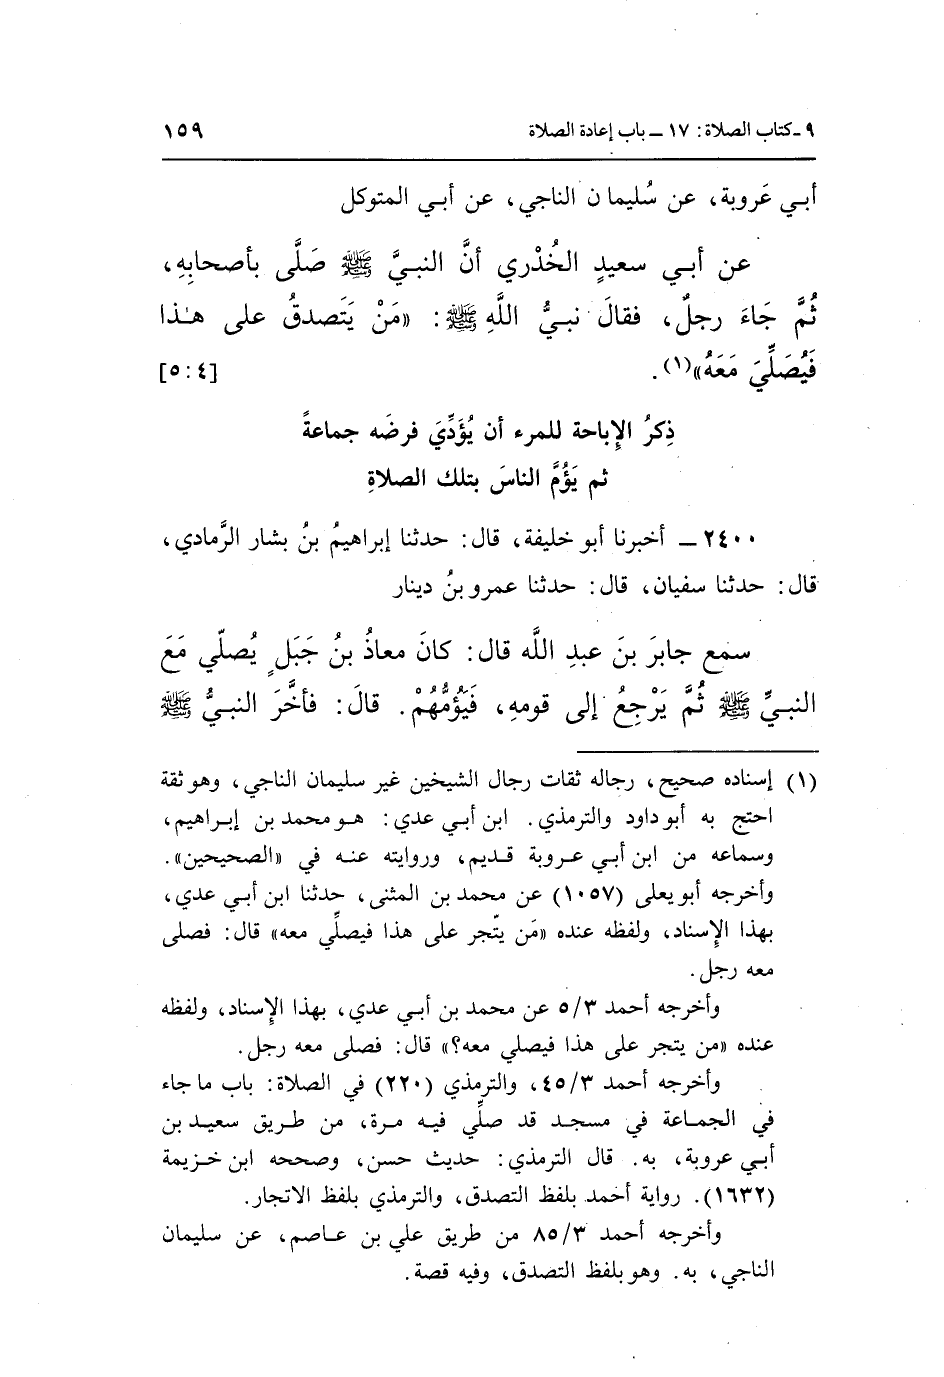 ٩ ـ كتاب الصلاة: ١٧ ـ باب إعادة الصلاة ١٥٩
أبي عَروبة، عن سُليمان الناجي، عن أبي المتوكل
عن أبي سعيدٍ الخُدْري أنَّ النبيَّ ﷺ صَلَّى بأصحابِهِ،
ثُمَّ جَاءَ رجلٌ، فقالَ نبيُّ اللَّهِ ﷺ: «مَنْ يَتَصدقُ على هذا
فَيُصَلِّيَ مَعَهُ»(١). [٤ : ٥]
ذِكرُ الإِباحة للمرء أن يُؤَدِّيَ فرضَه جماعةً
ثم يَؤُمَّ الناسَ بتلك الصلاةِ
٢٤٠٠ ـ أخبرنا أبو خليفة، قال: حدثنا إبراهيمُ بنُ بشار الرَّمادي،
قال: حدثنا سفيان، قال: حدثنا عمرو بنُ دينار
سمع جابرَ بنَ عبدِ اللَّه قال: كانَ معاذُ بنُ جَبَلٍ يُصلّي مَعَ
النبيِّ ﷺ ثُمَّ يَرْجِعُ إلى قومِهِ، فَيَؤُمُّهُمْ. قالَ: فأخَّرَ النبيُّ ﷺ
(١) إسناده صحيح، رجاله ثقات رجال الشيخين غير سليمان الناجي، وهو ثقة
احتج به أبو داود والترمذي. ابن أبي عدي: هو محمد بن إبراهيم،
وسماعه من ابن أبي عروبة قديم، وروايته عنه في «الصحيحين».
وأخرجه أبو يعلى (١٠٥٧) عن محمد بن المثنى، حدثنا ابن أبي عدي،
بهذا الإِسناد، ولفظه عنده «مَن يتّجر على هذا فيصلِّي معه» قال: فصلى
معه رجل.
وأخرجه أحمد ٥/٣ عن محمد بن أبي عدي، بهذا الإِسناد، ولفظه
عنده «من يتجر على هذا فيصلي معه؟» قال: فصلى معه رجل.
وأخرجه أحمد ٤٥/٣، والترمذي (٢٢٠) في الصلاة: باب ما جاء
في الجماعة في مسجد قد صلِّي فيه مرة، من طريق سعيد بن
أبي عروبة، به. قال الترمذي: حديث حسن، وصححه ابن خزيمة
(١٦٣٢). رواية أحمد بلفظ التصدق، والترمذي بلفظ الاتجار.
وأخرجه أحمد ٨٥/٣ من طريق علي بن عاصم، عن سليمان
الناجي، به. وهو بلفظ التصدق، وفيه قصة.